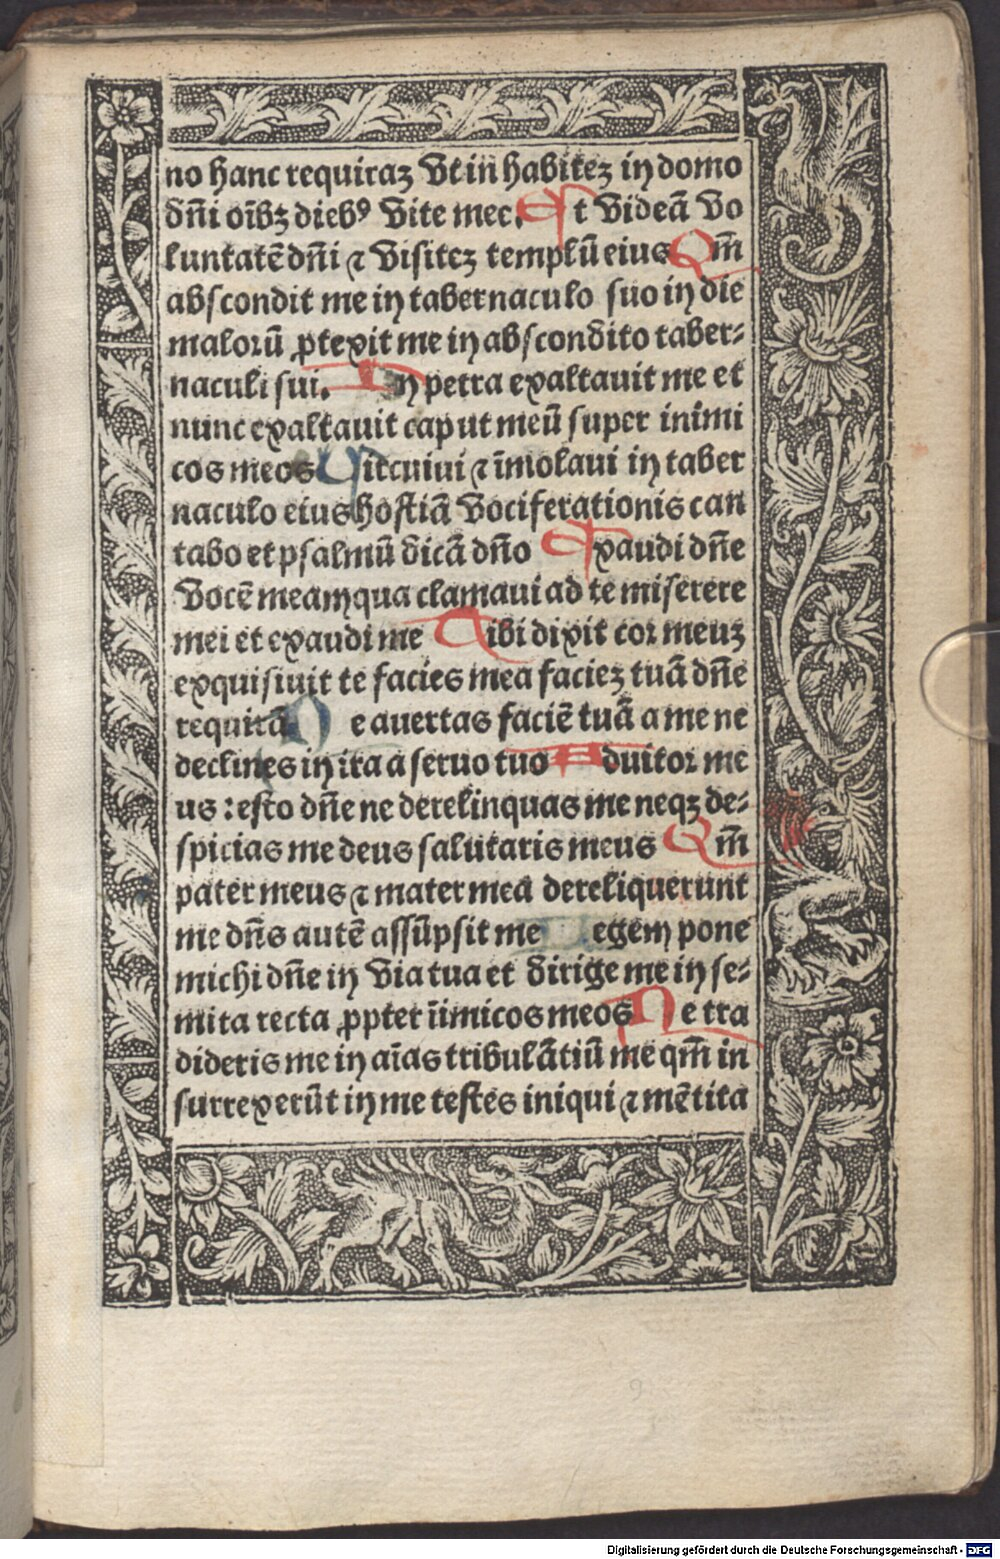 no hanc requiraꝫ Vt in habiteꝫ in domo
dn̄i oīb⁊ꝫ dieb⁹ Vite mee. Et Videā Vo
luntatē dn̄i ⁊ Visiteꝫ templū eius Qm̄
abscondit me in tabernaculo suo in die
malorū ꝓtexit me in abscondito taber⸗
naculi sui. In petra exaltauit me et
nunc exaltauit caput meū super inimi
cos meos Circuiui ⁊ īmolaui in taber
naculo eius hostiā Vociferationis can
tabo et psalmū dicā dn̄o Exaudi dn̄e
Vocē meam qua clamaui ad te miserere
mei et exaudi me Tibi dixit cor meuꝫ
exquisiuit te facies mea facieꝫ tuā dn̄e
requirā Ne auertas faciē tuā a me ne
declines in ira a seruo tuo Aduitor me
us : esto dn̄e ne derelinquas me neqꝫ de⸗
spicias me deus salutaris meus Qm̄
pater meus ⁊ mater mea dereliquerunt
me dn̄s autē assūpsit me Legem pone
michi dn̄e in Via tua et dirige me in se⸗
mita recta ꝓpter iīmicos meos Ne tra
dideris me in aīas tribulātiū me qm̄ in
surrexerūt in me testes iniqui ⁊ mētita
9
Digitalisierung gefördert durch die Deutsche Forschungsgemeinschaft - DFG